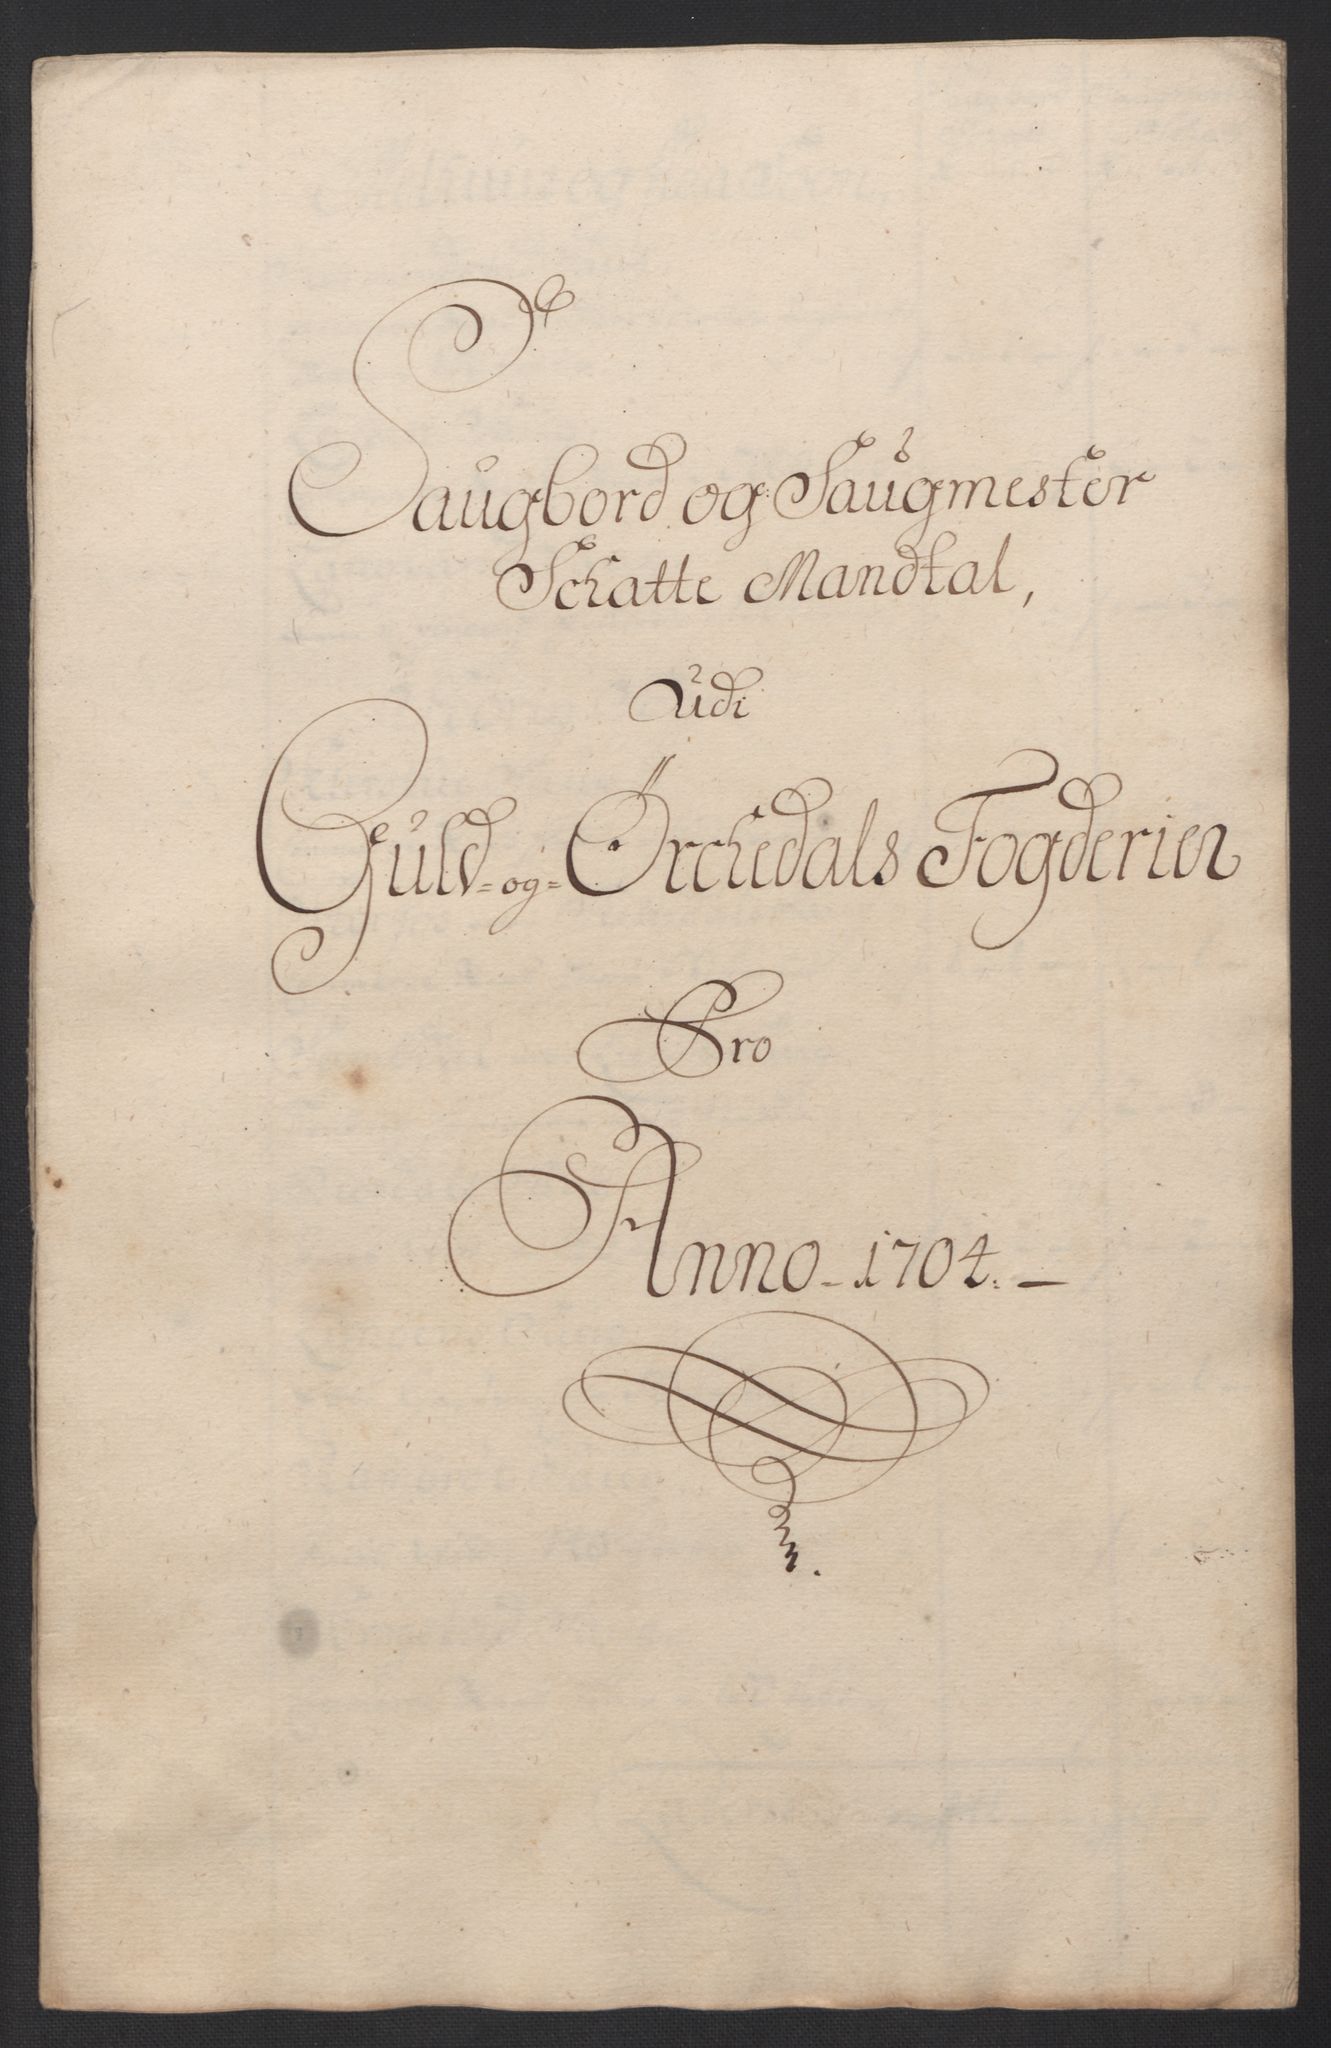 Saugbord og Saugmester
Schatte Mandtal,
Udi
Guld= og= Örchedals Fogderier
Pro
Anno - 1704. -